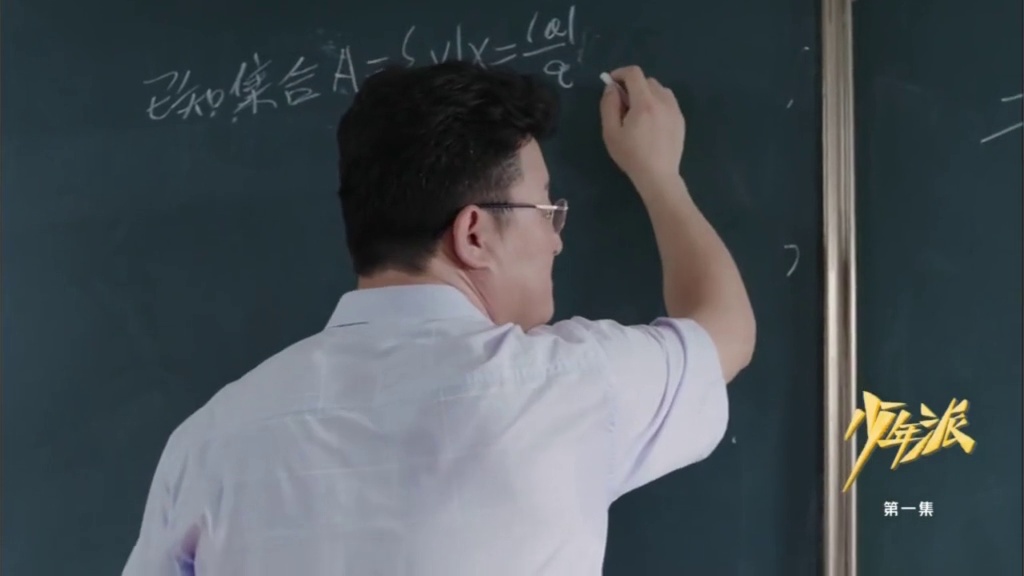 已知集合 A={x|x=|a|/a
少年派
第一集